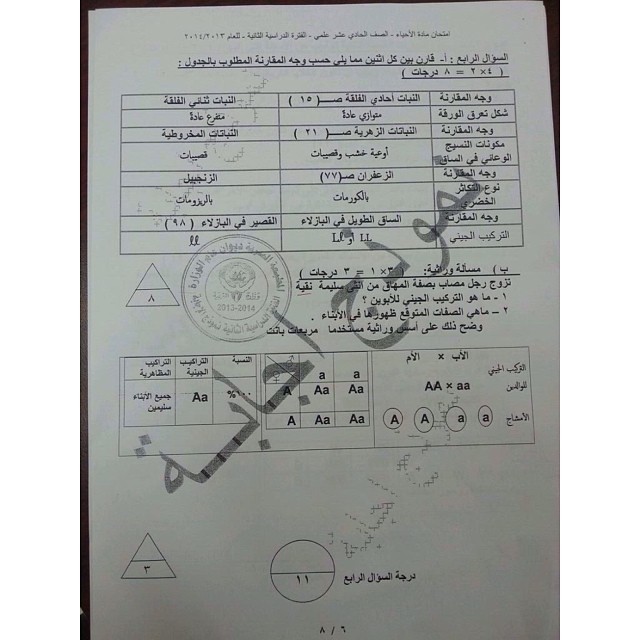 امتحان مادة الأحياء - الصف الحادي عشر علمي - الفترة الدراسية الثانية - للعام ٢٠١٤/٢٠١٣
السؤال الرابع : أ- قارن بين كل اثنين مما يلي حسب وجه المقارنة المطلوب بالجدول :
( ٤ × ٢ = ٨ درجات )
وجه المقارنة النبات أحادي الفلقة صــ( ١٥ ) النبات ثنائي الفلقة
شكل تعرق الورقة متوازي عادة متفرع عادة
وجه المقارنة النباتات الزهرية صــ( ٢١ ) النباتات المخروطية
مكونات النسيج الوعائي في الساق أوعية خشب وقصيبات قصيبات
وجه المقارنة الزعفران صــ(٧٧) الزنجبيل
نوع التكاثر الخضري بالكورمات بالريزومات
وجه المقارنة الساق الطويل في البازلاء القصير في البازلاء ( ٩٨ )
التركيب الجيني LL أو Ll ll
٨
2013-2014
ب ) مسألة وراثية: ( ٣ × ١ = ٣ درجات )
تزوج رجل مصاب بصفة المهاق من أنثى سليمة نقية
١ - ما هو التركيب الجيني للأبوين ؟
٢ - ماهي الصفات المتوقع ظهورها في الأبناء .
وضح ذلك على أسس وراثية مستخدما مربعات بانت
الأب × الأم
التركيب الجيني للوالدين AA × aa
الأمشاج A A a a
a a
A Aa Aa
A Aa Aa
النسبة التراكيب الجينية التراكيب المظاهرية
١٠٠% Aa جميع الأبناء سليمين
نموذج إجابة
٣
درجة السؤال الرابع
١١
٦ / ٨